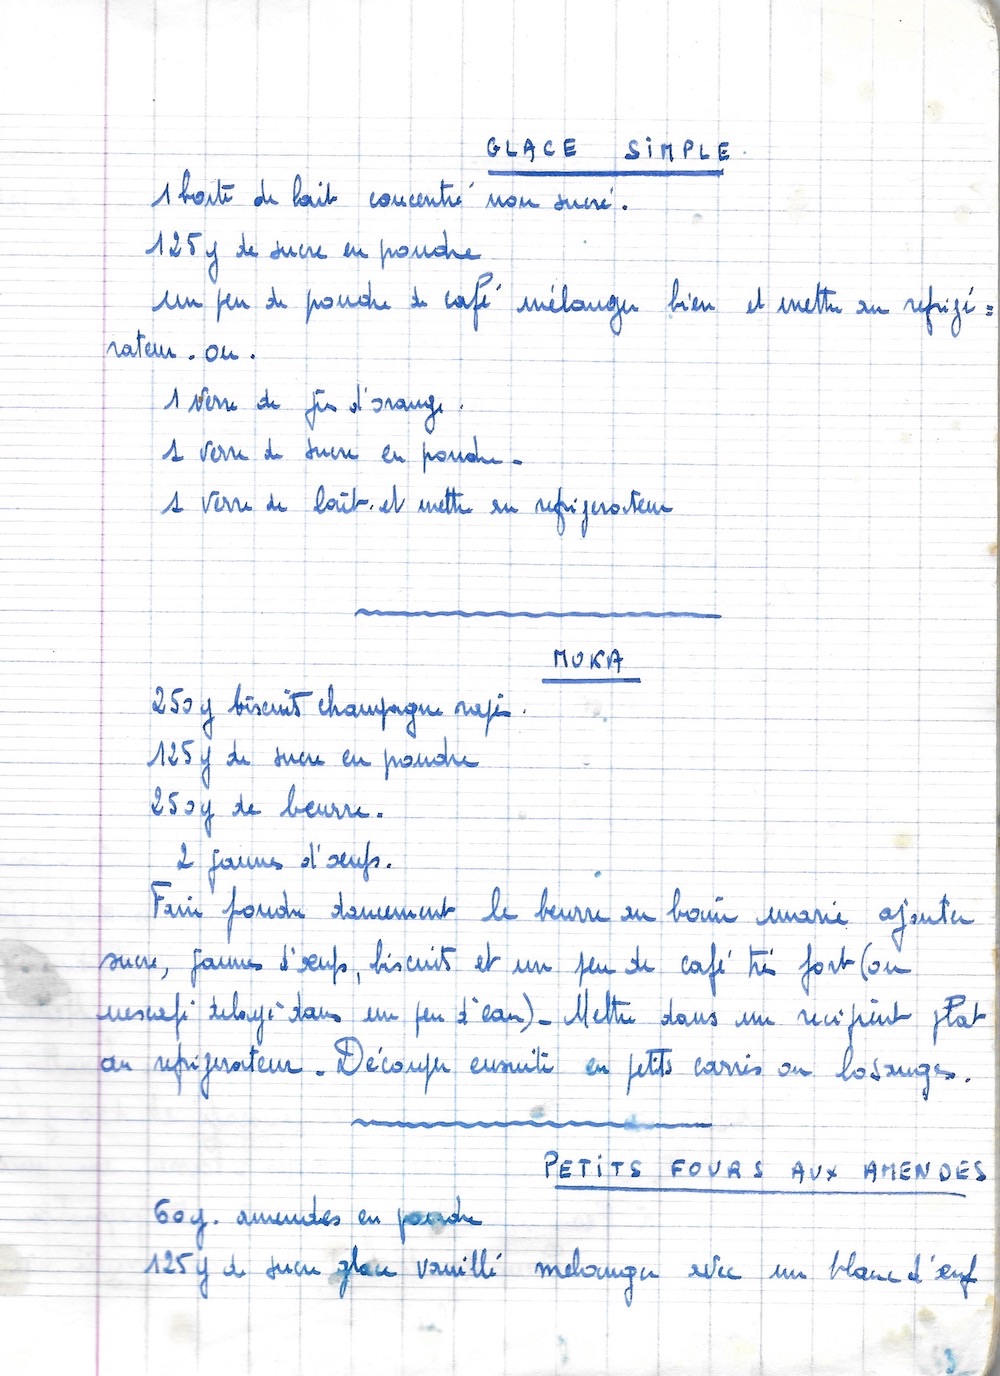 GLACE SIMPLE.
1 boîte de lait concentré non sucré.
125g de sucre en poudre
un peu de poudre de café mélanger bien et mettre au refrigé=
rateur. ou.
1 Verre de jus d'orange.
1 Verre de sucre en poudre-
1 Verre de lait. et mettre au refrigerateur
MOKA
250g biscuits champagne rapé.
125g de sucre en poudre
250g de beurre.
2 jaunes d'œufs.
Faire fondre doucement le beurre au bain marie ajouter
sucre, jaunes d'œufs, biscuits et un peu de café très fort (ou
nescafé delayé dans un peu d'eau)- Mettre dans un recipient plat
au refrigerateur. Découper ensuite en petits carrés ou losanges.
PETITS FOURS AUX AMENDES
60g. amendes en poudre
125g de sucre glace vanillé melanger avec un blanc d'œuf
3